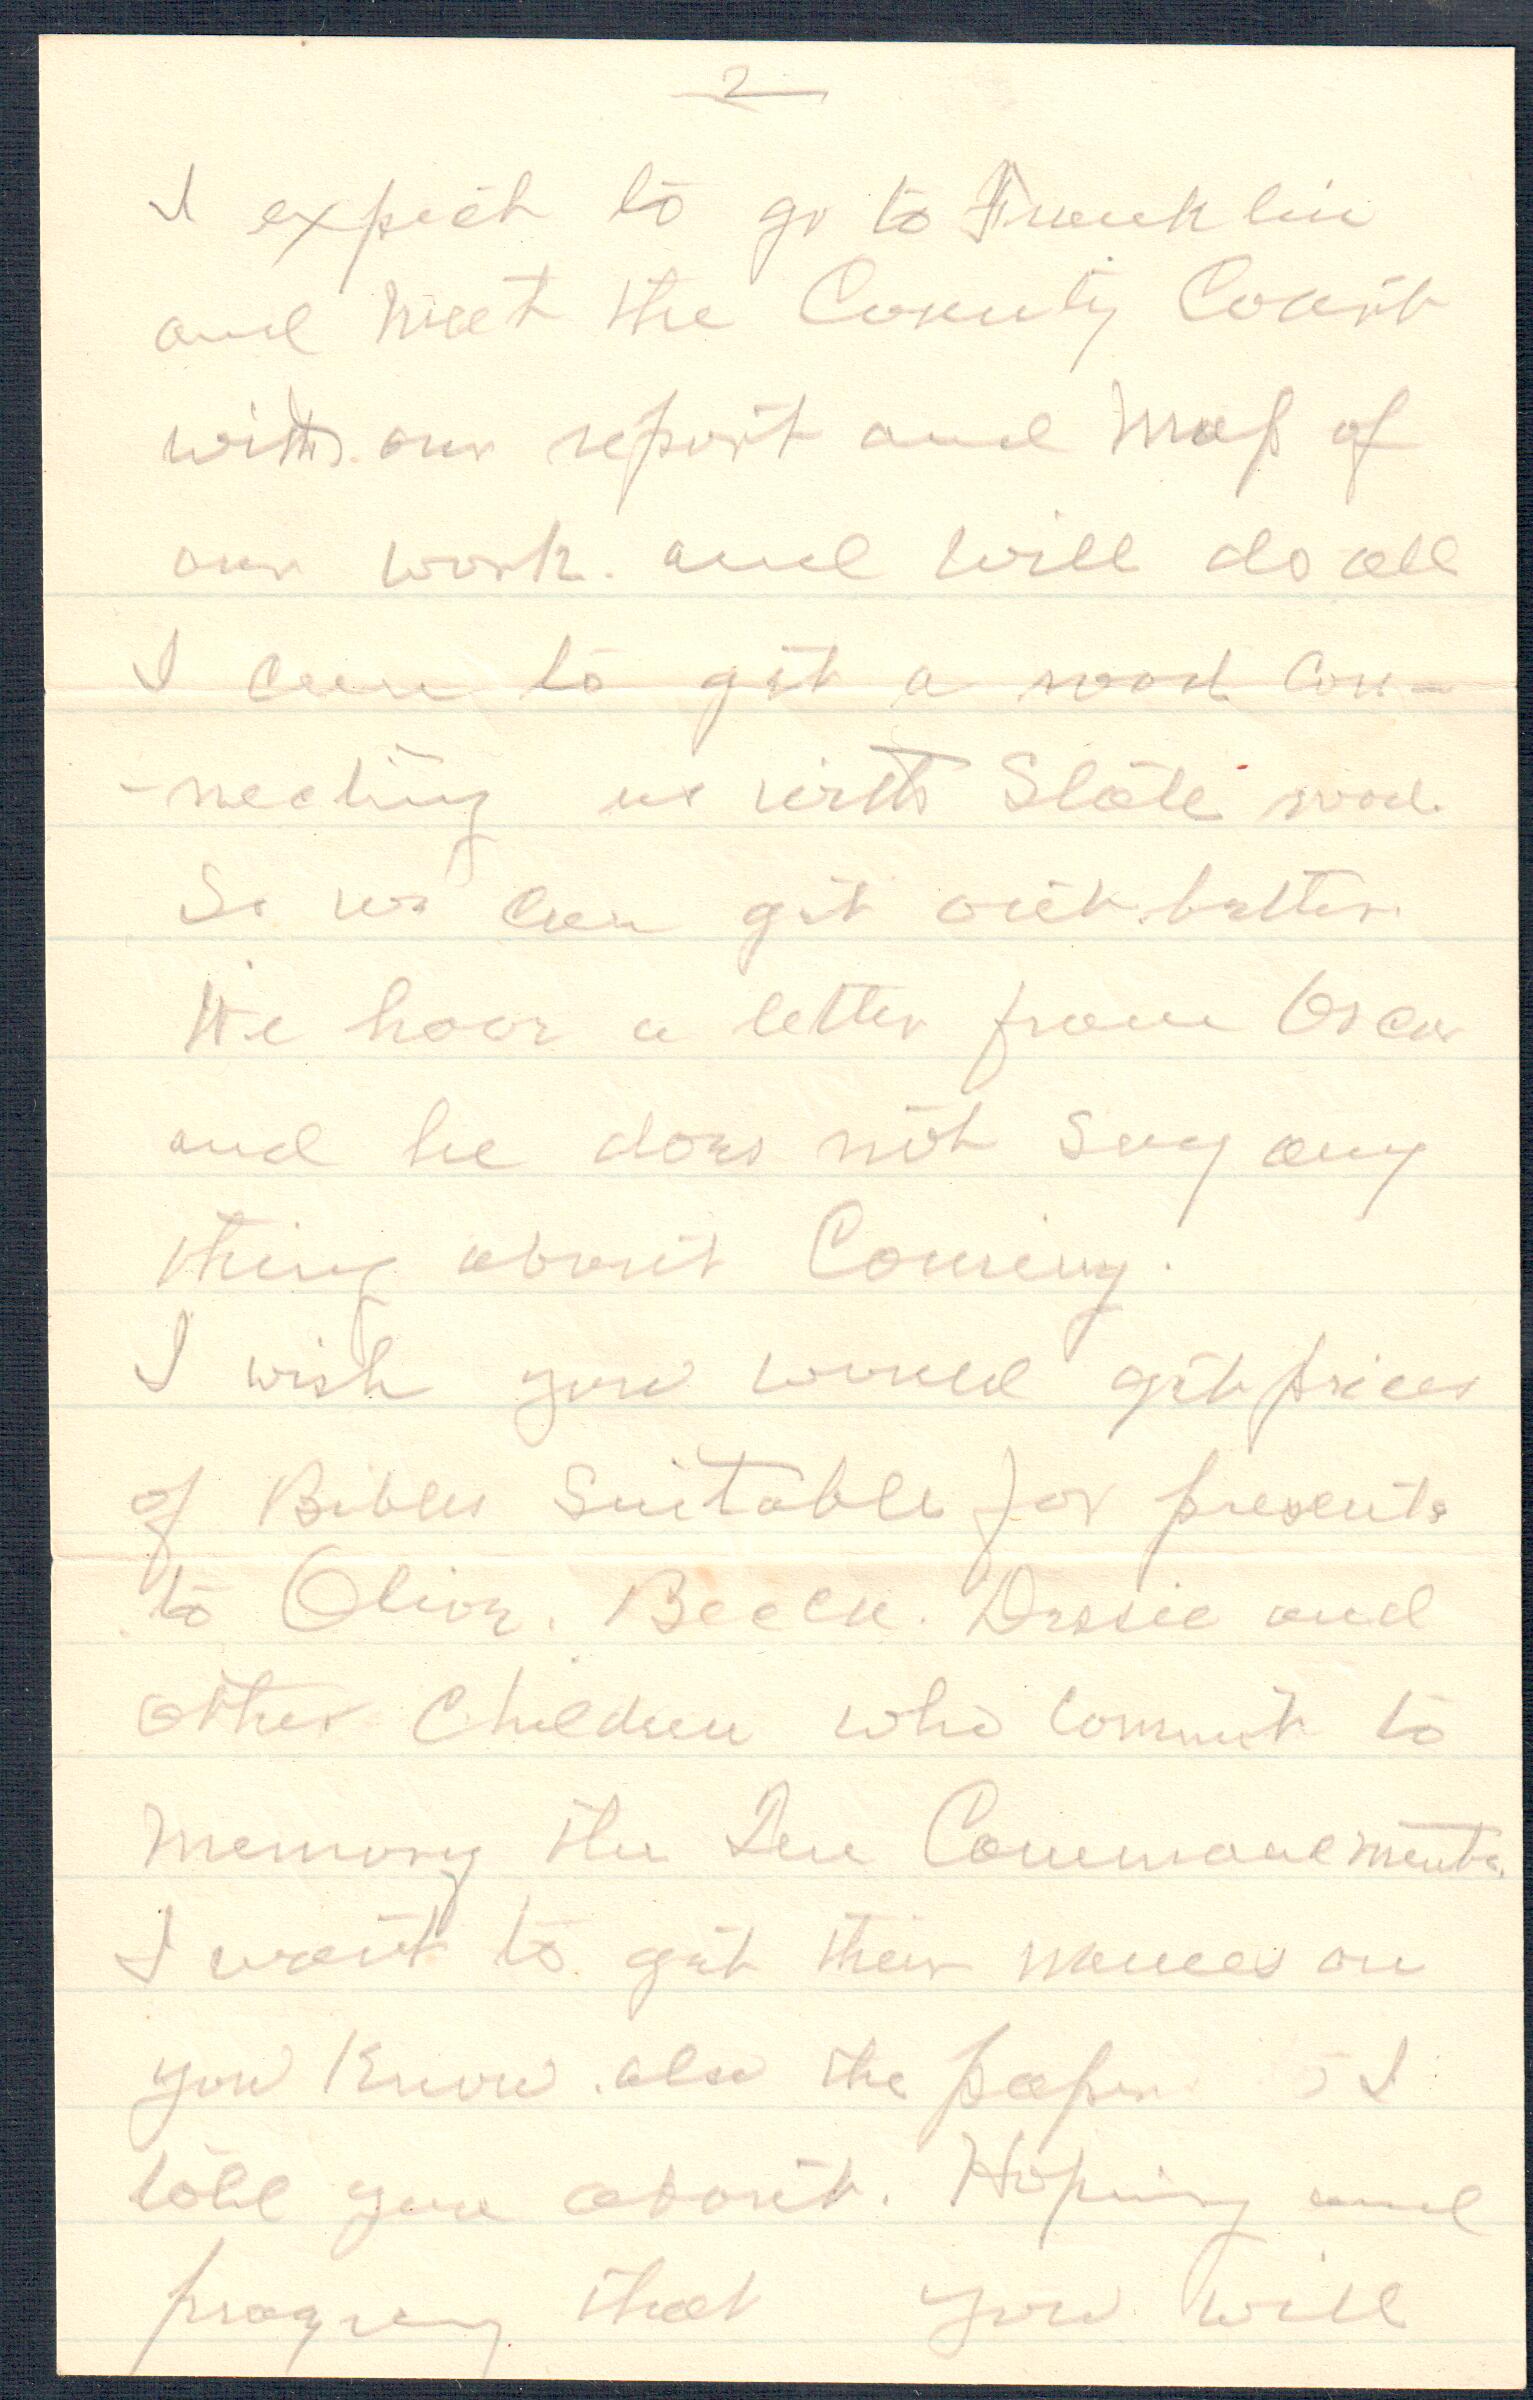 2
I expect to go to Franklin
and meet the County Court
with our report and Map of
our work. and will do all
I can to get a road Con-
-necting us with State road
So we can get out better.
We have a letter from Oscar
and he does not say any
thing about Coming.
I wish you would get prices
of Bibles Suitable for presents
to Olive. Beecu. Dessie and
other Children who commit to
memory the Ten Commandments.
I want to get their names on
you know. also the paper I
told you about. Hoping and
praying that you will